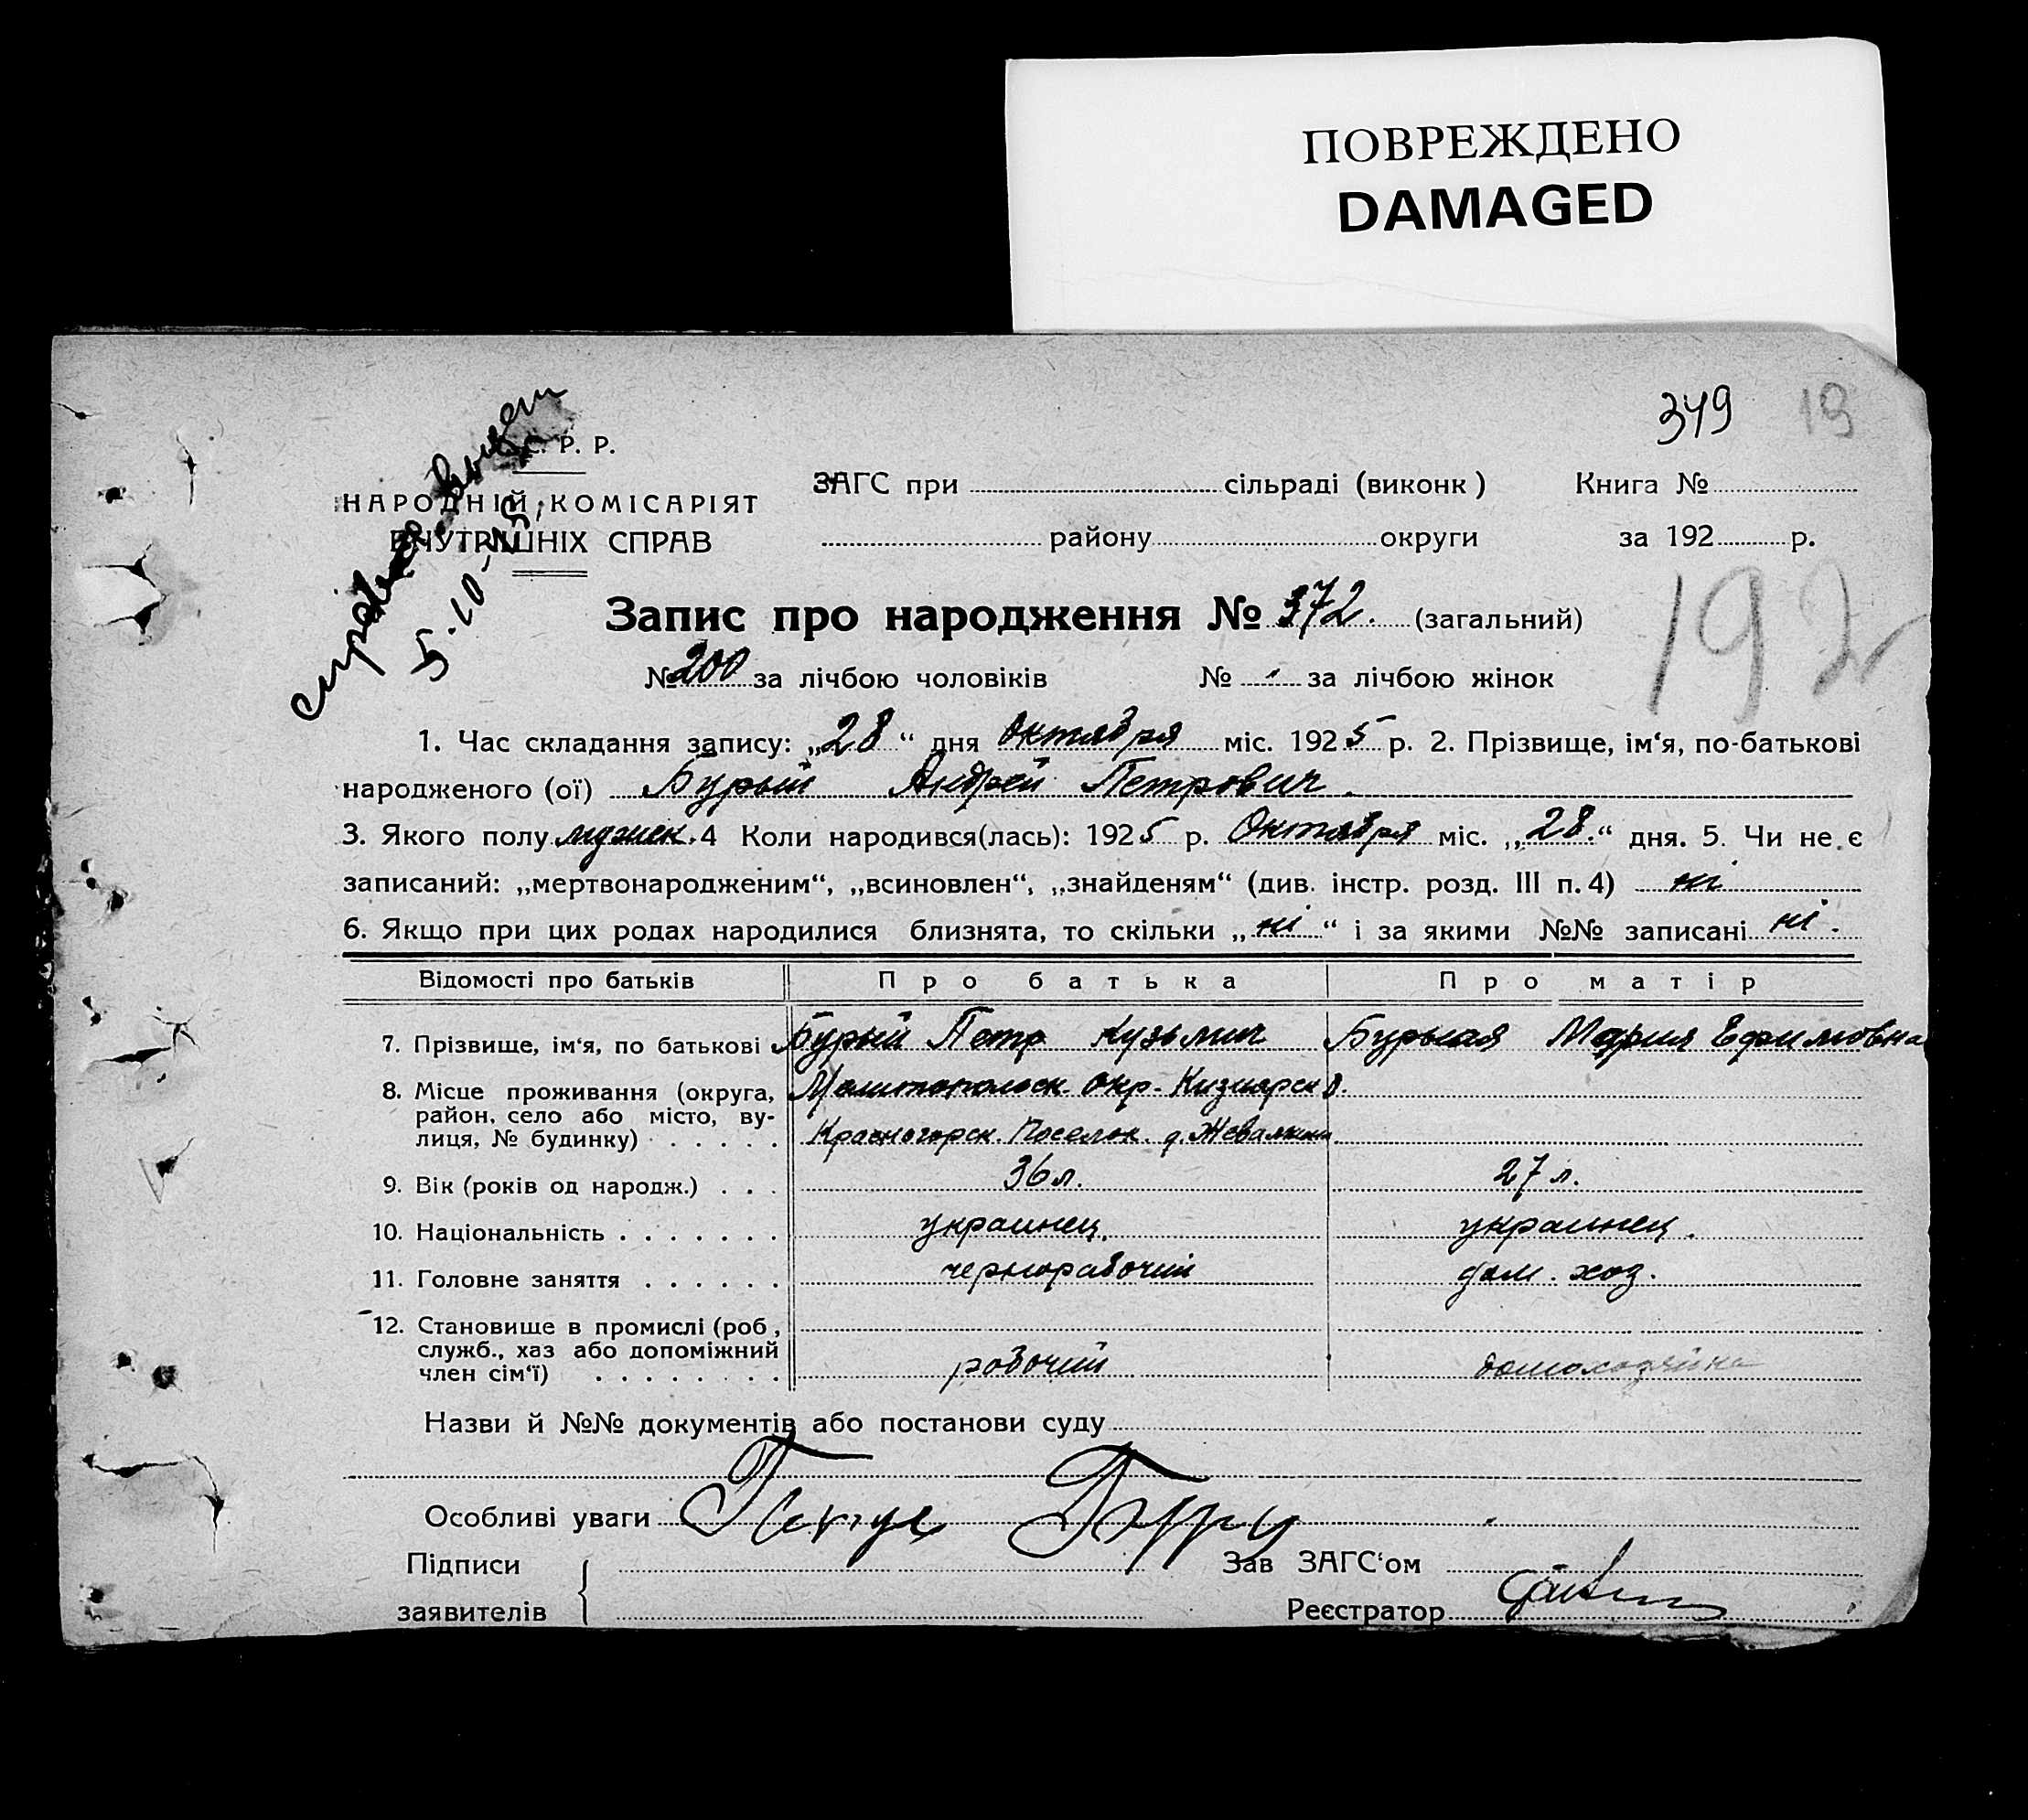 ПОВРЕЖДЕНО
DAMAGED
349 19
С. Р. Р.
НАРОДНІЙ КОМІСАРІЯТ
ВНУТРІШНІХ СПРАВ
5-10-
ЗАГС при сільраді (виконк) Книга №
району округи за 192 р.
Запис про народження № 372. (загальний)
192
№ 200 за лічбою чоловіків № за лічбою жінок
1. Час складання запису: „28“ дня Октября міс. 1925 р. 2. Прізвище, ім‘я, по-батькові
народженого (ої) Бурый Андрей Петрович.
3. Якого полу мужск. 4 Коли народився(лась): 1925 р. Октября міс. „28.“ дня. 5. Чи не є
записаний: „мертвонародженим“, „всиновлен“, „знайденям“ (див. інстр. розд. III п. 4) ні
6. Якщо при цих родах народилися близнята, то скільки „ні“ і за якими №№ записані ні.
Відомості про батьків Про батька Про матір
7. Прізвище, ім‘я, по батькові Бурый Петр Кузьмич Бурыая Мария Ефимовна
8. Місце проживання (округа, окр.
район, село або місто, ву-
лиця, № будинку) Красногорск. Поселок. д.
9. Вік (років од народж.) 36 л. 27 л.
10. Національність украинец. украинец.
11. Головне заняття чернорабочий дом. хоз.
12. Становище в промислі (роб,
служб., хаз або допоміжний
член сім‘ї) робочий домохозяйка
Назви й №№ документів або постанови суду
Особливі уваги
Підписи Зав ЗАГС‘ом
заявителів Реєстратор